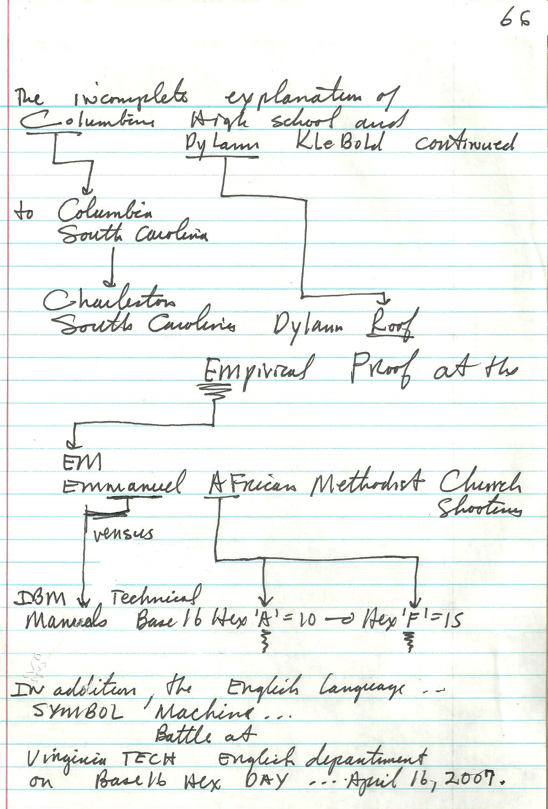 66
The incomplete explanation of
Columbine High school and
Dylann KleBold continued
to Columbia
South Carolina
Charleston
South Carolina Dylann Roof
Empirical Proof at the
EM
Emmanuel AFrican Methodist Church
Shooting
versus
Technical
Manuals Base 16 Hex 'A' = 10 → Hex 'F' = 15
IN addition, the English Language ...
SYMBOL Machine...
Battle at
Virginia TECH English department
on Base 16 Hex DAY .... April 16, 2007.